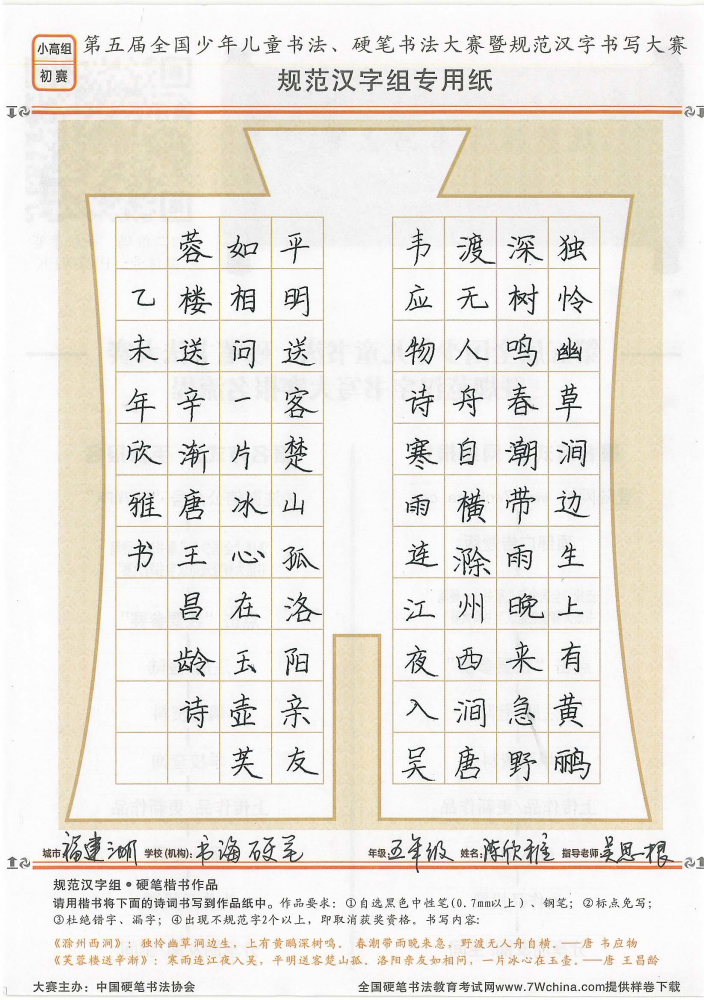 小高组
初赛
第五届全国少年儿童书法、硬笔书法大赛暨规范汉字书写大赛
规范汉字组专用纸
独怜幽草涧边生上有黄鹂
深树鸣春潮带雨晚来急野
渡无人舟自横滁州西涧唐
韦应物诗寒雨连江夜入吴
平明送客楚山孤洛阳亲友
如相问一片冰心在玉壶芙
蓉楼送辛渐唐王昌龄诗
乙未年欣雅书
城市:福建 学校(机构):书海硬笔 年级:五年级 姓名:陈欣雅 指导老师:吴思根
规范汉字组•硬笔楷书作品
请用楷书将下面的诗词书写到作品纸中。作品要求:①自选黑色中性笔(0.7mm以上)、钢笔;②标点免写;
③杜绝错字、漏字;④出现不规范字2个以上,即取消获奖资格。书写内容:
《滁州西涧》:独怜幽草涧边生,上有黄鹂深树鸣。春潮带雨晚来急,野渡无人舟自横。——唐 韦应物
《芙蓉楼送辛渐》:寒雨连江夜入吴,平明送客楚山孤。洛阳亲友如相问,一片冰心在玉壶。——唐 王昌龄
大赛主办:中国硬笔书法协会 全国硬笔书法教育考试网www.7Wchina.com提供样卷下载